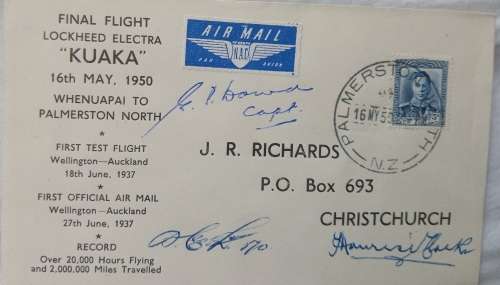 FINAL FLIGHT
LOCKHEED ELECTRA
"KUAKA"
16TH MAY, 1950
WHENUAPAI TO
PALMERSTON NORTH
★
FIRST TEST FLIGHT
Wellington—Auckland
18th June, 1937
★
FIRST OFFICIAL AIR MAIL
Wellington—Auckland
27th June, 1937
★
RECORD
Over 20,000 Hours Flying
and 2,000,000 Miles Travelled
AIR MAIL
NAC
PAR AVION
Capt.
PALMERSTON NORTH
16 MY 50
N.Z
J. R. RICHARDS
P.O. Box 693
CHRISTCHURCH
Maurice